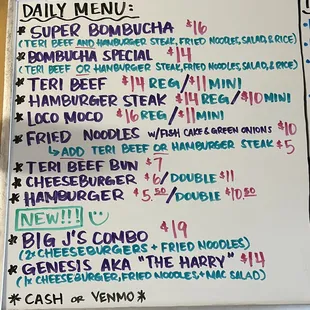 DAILY MENU:
* SUPER BOMBUCHA $16
(TERI BEEF AND HAMBURGER STEAK, FRIED NOODLES, SALAD, & RICE)
* BOMBUCHA SPECIAL $14
(TERI BEEF OR HAMBURGER STEAK, FRIED NOODLES, SALAD, & RICE)
* TERI BEEF $14 REG/$11 MINI
* HAMBURGER STEAK $14 REG/$10 MINI
* LOCO MOCO $16 REG/$11 MINI
* FRIED NOODLES W/FISH CAKE & GREEN ONIONS $10
↳ ADD TERI BEEF OR HAMBURGER STEAK $5
* TERI BEEF BUN $7
* CHEESEBURGER $6/DOUBLE $11
* HAMBURGER $5.50/DOUBLE $10.50
NEW!!!
* BIG J'S COMBO $19
(2x CHEESEBURGERS + FRIED NOODLES)
* GENESIS AKA "THE HARRY" $14
(1x CHEESEBURGER, FRIED NOODLES + MAC SALAD)
* CASH OR VENMO *